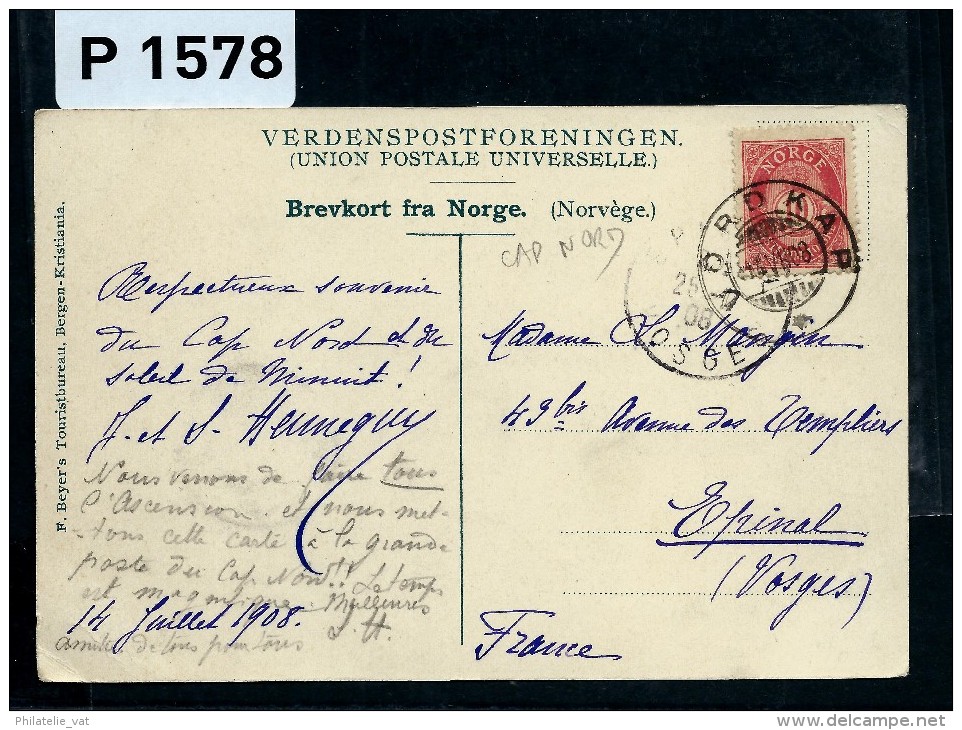 P 1578
VERDENSPOSTFORENINGEN.
(UNION POSTALE UNIVERSELLE.)
Brevkort fra Norge. (Norvège.)
NORGE
10
NORDKAP
08
25
08
VOSGES
CAP NORD
F. Beyer's Touristbureau, Bergen-Kristiania.
Respectueux souvenir
du Cap Nord et du
soleil de Minuit!
J. et S. Henneguy
Nous venons de faire tous
l'Ascension et nous met-
-tons cette carte à la grande
poste du Cap Nord!! Le temps
est magnifique. Meilleures
S. H.
amitiés de tous pour tous
14 Juillet 1908.
Madame Ch. Mangin
49 bis Avenue des Templiers
Epinal
(Vosges)
France
Philatelie_vat
http://www.delcampe.net